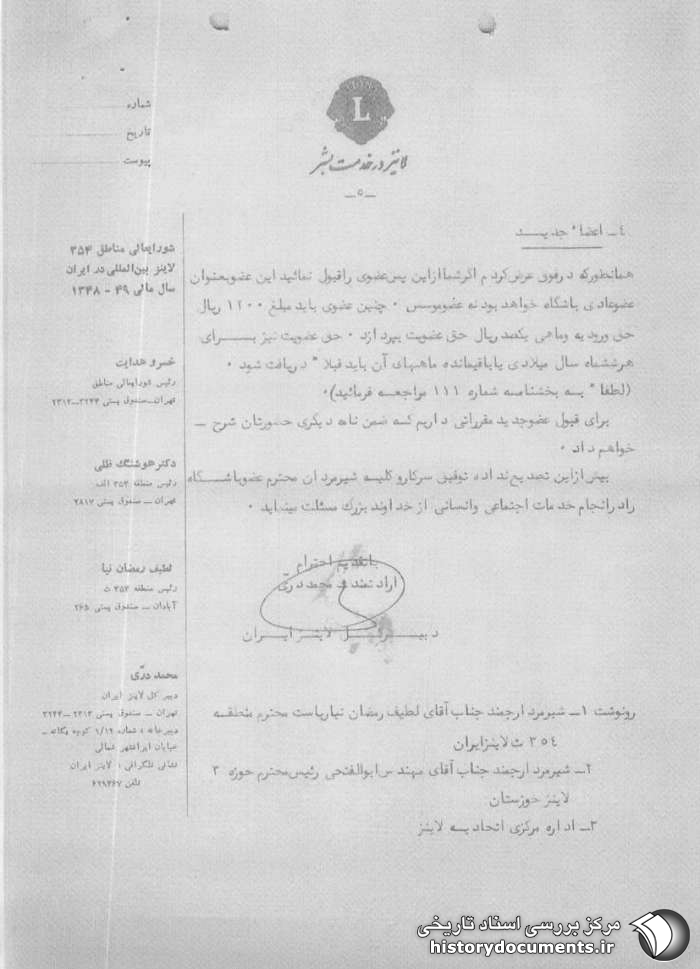 شماره
تاریخ
پیوست
LIONS
L
لاینز در خدمت بشر
ــ ۵ ــ
شورایعالی مناطق ۳۵۴
لاینز بین‌المللی در ایران
سال مالی ۴۹ - ۱۳۴۸
خسرو هدایت
رئیس شورایعالی مناطق
تهران-صندوق پستی ۳۲۴۴-۲۳۱۳
دکتر هوشنگ ظلی
رئیس منطقه ۳۵۴ الف
تهران ــ صندوق پستی ۲۸۱۷
لطیف رمضان نیا
رئیس منطقه ۳۵۴ ث
آبادان ــ صندوق پستی ۲۶۵
محمد درّی
دبیر کل لاینز ایران
تهران ــ صندوق پستی ۲۳۱۳ــ۳۲۴۴
دبیرخانه : شماره ۱/۱۲ کوچه یگانه ــ
خیابان ایرانشهر شمالی
نشانی تلگرافی : لاینز ایران
تلفن ۶۲۹۳۶۷
٤ــ اعضاء جدیـــد
همانطورکه در فوق عرض کردم اگر شما از این پس عضوی را قبول نمائید این عضو بعنوان
عضو عادی باشگاه خواهد بود نه عضو موسس ۰ چنین عضوی باید مبلغ ۱۲۰۰ ریال
حق ورودیه و ماهی یکصد ریال حق عضویت بپردازد ۰ حق عضویت نیز بـــرای
هر ششماه سال میلادی یا باقیمانده ماههای آن باید قبلاً دریافت شود ۰
(لطفاً به بخشنامه شماره ۱۱۱ مراجعه فرمائید)۰
برای قبول عضو جدید مقرراتی داریم که ضمن نامه دیگری حضورتان شرح ــ
خواهم داد ۰
بیش از این تصدیع نداده توفیق سرکار و کلیه شیرمردان محترم عضو باشـــگاه
را در انجام خدمات اجتماعی و انسانی از خداوند بزرگ مسئلت مینماید ۰
با تقدیم احترام
ارادتمند محمد درّی
دبیـــرکـــل لاینز ایـــران
رونوشت ۱ــ شیرمرد ارجمند جناب آقای لطیف رمضان نیا ریاست محترم منطقـــه
۳۵٤ ث لاینز ایران
۲ــ شیرمرد ارجمند جناب آقای مهندس ابوالفتحی رئیس محترم حوزه ۳
لاینز خوزستان
۳ــ اداره مرکزی اتحادیه لاینز
مرکز بررسی اسناد تاریخی
historydocuments.ir